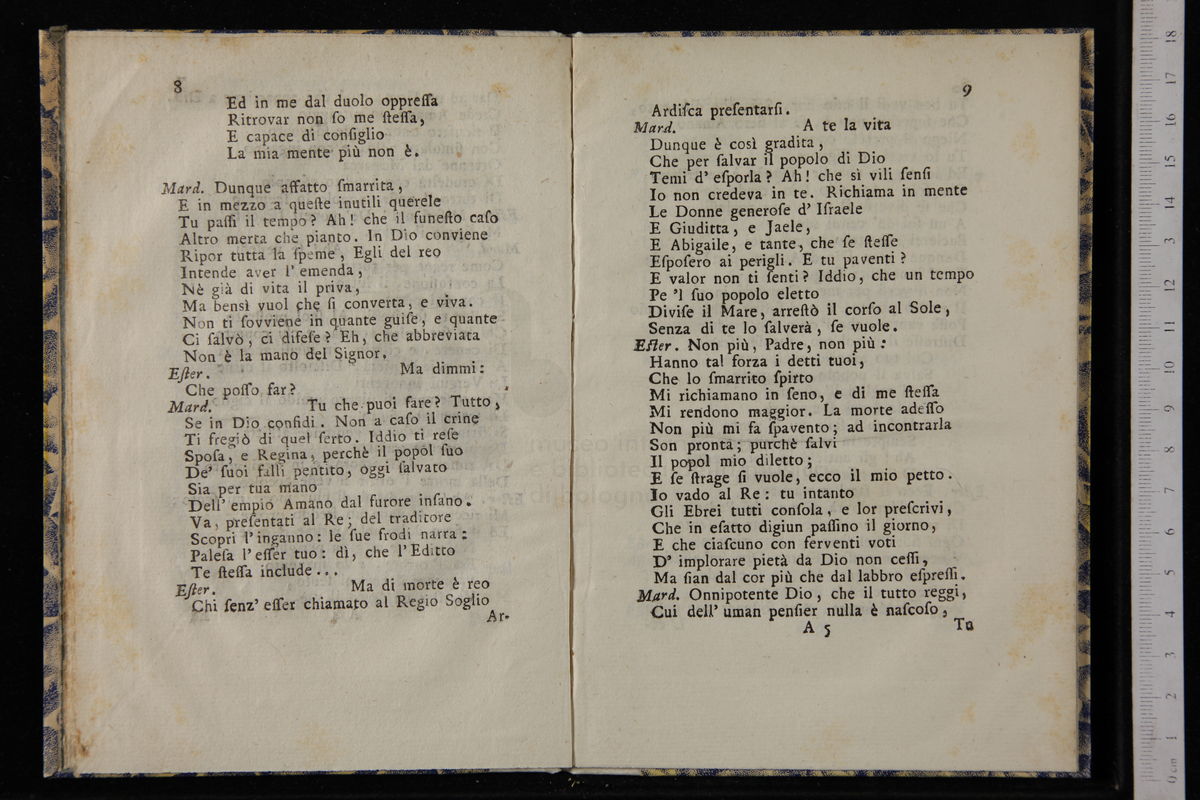 8
Ed in me dal duolo oppreſſa
Ritrovar non ſo me ſteſſa,
E capace di conſiglio
La mia mente più non è.
Mard. Dunque affatto ſmarrita,
E in mezzo a queſte inutili querele
Tu paſſi il tempo? Ah! che il funeſto caſo
Altro merta che pianto. In Dio conviene
Ripor tutta la ſpeme, Egli del reo
Intende aver l'emenda,
Nè già di vita il priva,
Ma bensì vuol che ſi converta, e viva.
Non ti ſovviene in quante guiſe, e quante
Ci ſalvò, ci difeſe? Eh, che abbreviata
Non è la mano del Signor.
Eſter. Ma dimmi:
Che poſſo far?
Mard. Tu che puoi fare? Tutto,
Se in Dio confidi. Non a caſo il crine
Ti fregiò di quel ſerto. Iddio ti reſe
Spoſa, e Regina, perchè il popol ſuo
De' ſuoi falli pentito, oggi ſalvato
Sia per tua mano
Dell' empio Amano dal furore inſano.
Va, preſentati al Re; del traditore
Scopri l'inganno: le ſue frodi narra:
Paleſa l'eſſer tuo: dì, che l'Editto
Te ſteſſa include...
Eſter. Ma di morte è reo
Chi ſenz' eſſer chiamato al Regio Soglio
Ar-
9
Ardiſca preſentarſi.
Mard. A te la vita
Dunque è così gradita,
Che per ſalvar il popolo di Dio
Temi d' eſporla? Ah! che sì vili ſenſi
Io non credeva in te. Richiama in mente
Le Donne generoſe d' Iſraele
E Giuditta, e Jaele,
E Abigaile, e tante, che ſe ſteſſe
Eſpoſero ai perigli. E tu paventi?
E valor non ti ſenti? Iddio, che un tempo
Pe 'l ſuo popolo eletto
Diviſe il Mare, arreſtò il corſo al Sole,
Senza di te lo ſalverà, ſe vuole.
Eſter. Non più, Padre, non più:
Hanno tal forza i detti tuoi,
Che lo ſmarrito ſpirto
Mi richiamano in ſeno, e di me ſteſſa
Mi rendono maggior. La morte adeſſo
Non più mi fa ſpavento; ad incontrarla
Son pronta; purchè ſalvi
Il popol mio diletto;
E ſe ſtrage ſi vuole, ecco il mio petto.
Io vado al Re: tu intanto
Gli Ebrei tutti conſola, e lor preſcrivi,
Che in eſatto digiun paſſino il giorno,
E che ciaſcuno con ferventi voti
D' implorare pietà da Dio non ceſſi,
Ma ſian dal cor più che dal labbro eſpreſſi.
Mard. Onnipotente Dio, che il tutto reggi,
Cui dell' uman penſier nulla è naſcoſo,
A 5 Tu